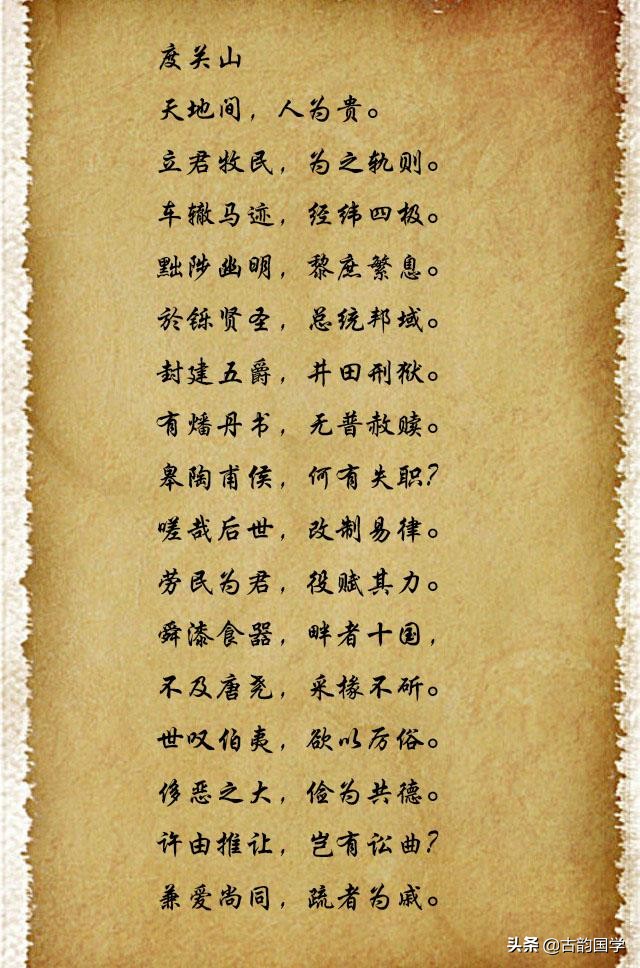 度关山
天地间，人为贵。
立君牧民，为之轨则。
车辙马迹，经纬四极。
黜陟幽明，黎庶繁息。
於铄贤圣，总统邦域。
封建五爵，井田刑狱。
有燔丹书，无普赦赎。
皋陶甫侯，何有失职？
嗟哉后世，改制易律。
劳民为君，役赋其力。
舜漆食器，畔者十国，
不及唐尧，采椽不斫。
世叹伯夷，欲以厉俗。
侈恶之大，俭为共德。
许由推让，岂有讼曲？
兼爱尚同，疏者为戚。
头条 @古韵国学